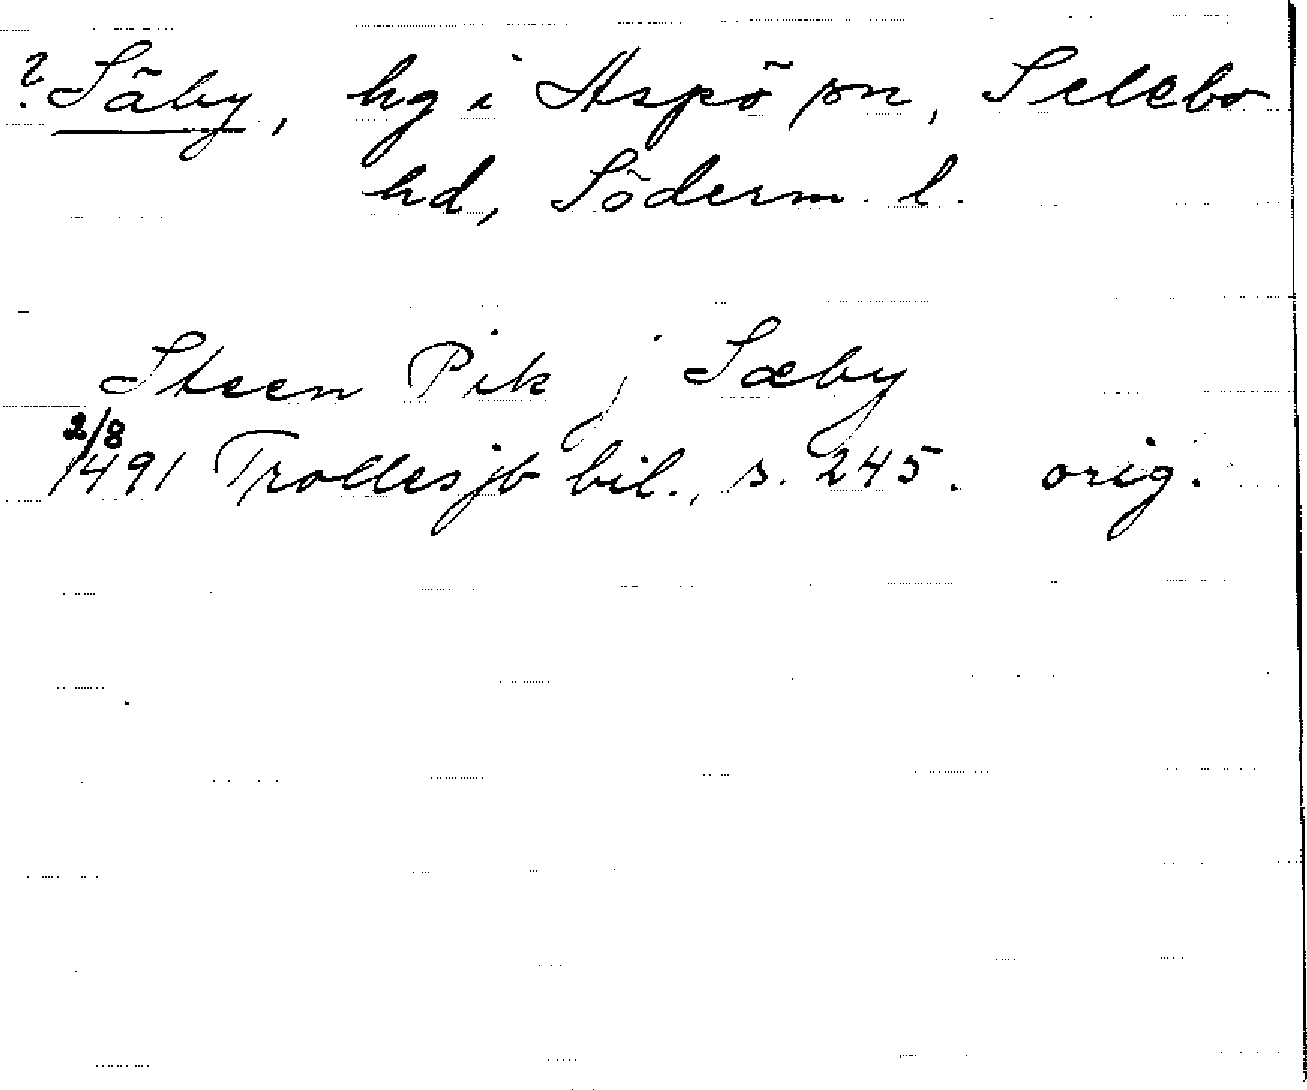 ? Säby, hg i Aspö sn, Selebo
hd, Söderm. l.
Steen Pik j Sæby
2/8
1491 Trollesjb bil., s. 245. orig.